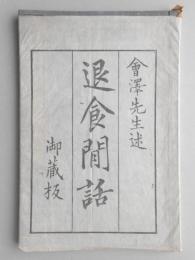 會澤先生述
退食閒話
御蔵板